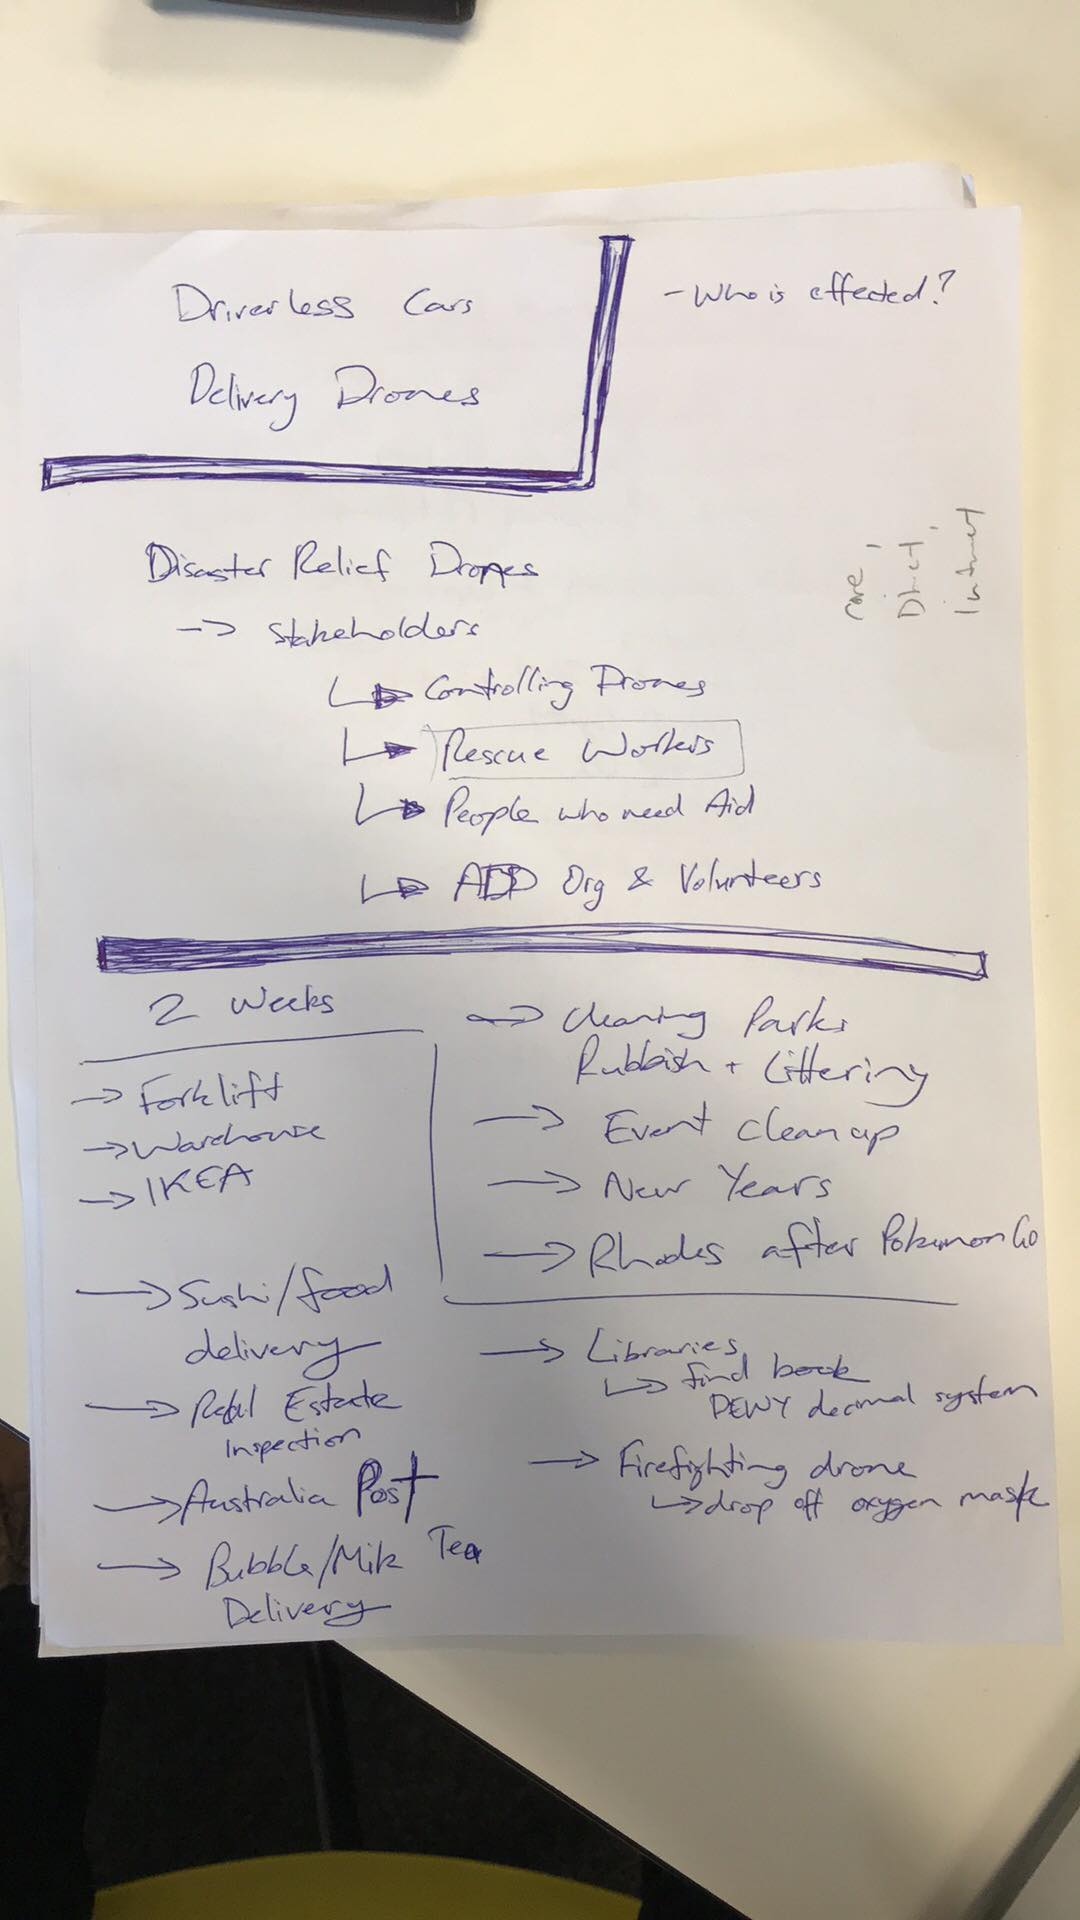 Driverless Cars
Delivery Drones
- Who is effected?
Disaster Relief Drones
-> Stakeholders
Controlling Drones
Rescue Workers
People who need Aid
Org & Volunteers
2 Weeks
-> Forklift
-> Warehouse
-> IKEA
-> Sushi/food
delivery
-> Real Estate
Inspection
-> Australia Post
-> Bubble/Milk Tea
Delivery
-> Cleaning Parks
Rubbish + Littering
-> Event clean up
-> New Years
-> Rhodes after Pokemon Go
-> Libraries
-> find book
DEWY decimal system
-> Firefighting drone
-> drop off oxygen mask